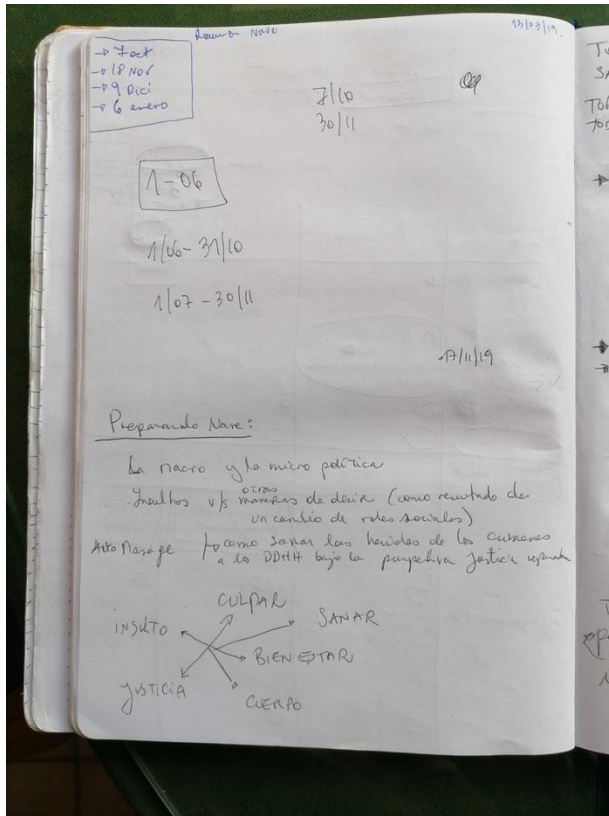 Reunion Nave
13/03/19.
→ 7 oct
→ 18 Nov
→ 9 Dici
→ 6 enero
7/10
30/11
1-06
1/06 - 31/10
1/07 - 30/11
17/11/19
Preparando Nave:
La macro y la micro política
Insultos v/s otras maneras de decir (como resultado de
un cambio de roles sociales)
Auto Masage ↳ como sanar las heridas de los crimenes
a los DDHH bajo la perspectiva justicia
CULPAR
INSULTO
SANAR
BIENESTAR
JUSTICIA
CUERPO